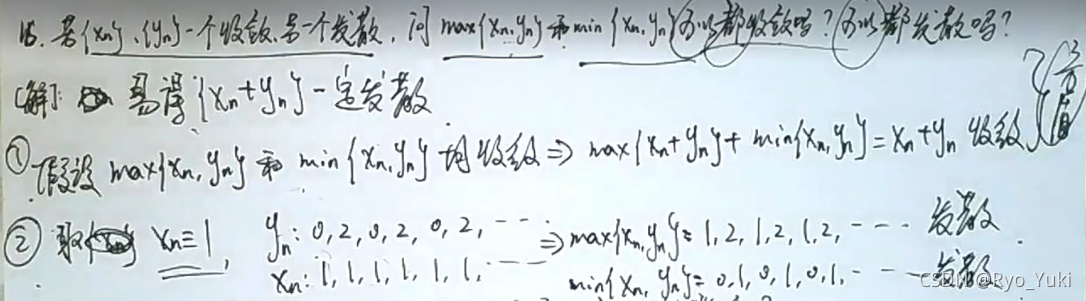 若{xn}、{yn}一个收敛,另一个发散,问max{xn,yn}和min{xn,yn}可以都收敛吗?可以都发散吗?
[解]: 易得{xn+yn}一定发散
①假设max{xn,yn}和min{xn,yn}均收敛⇒max{xn+yn}+min{xn,yn}=xn+yn收敛. 矛盾
②取 xn≡1, yn:0,2,0,2,0,2,…… ⇒max{xn,yn}=1,2,1,2,1,2,…… 发散.
xn:1,1,1,1,1,1,…… min{xn,yn}=0,1,0,1,0,1,…… 发散
CSDN @Ryo_Yuki